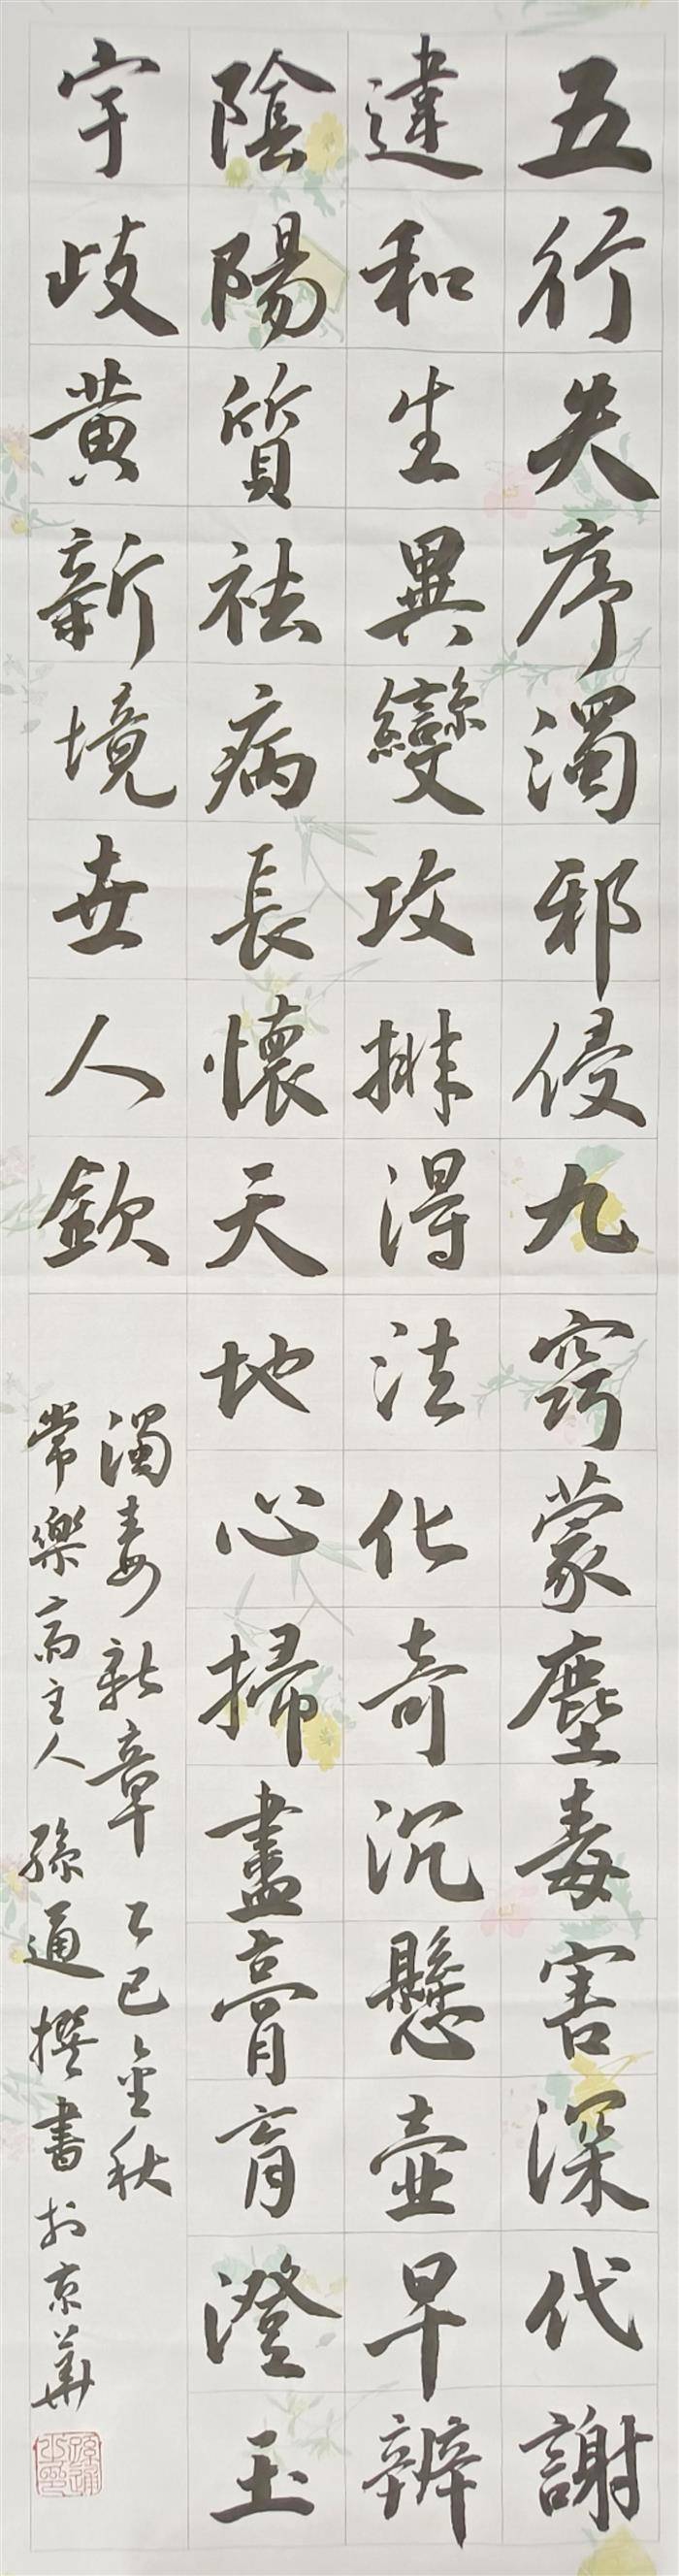 五行失序濁邪侵九竅蒙塵毒害深代謝
違和生異變攻排得法化奇沉懸壺早辨
陰陽質祛病長懷天地心掃盡膏肓澄玉
宇岐黃新境世人欽
濁毒新章乙巳金秋
常樂齋主人孫通撰書於京華